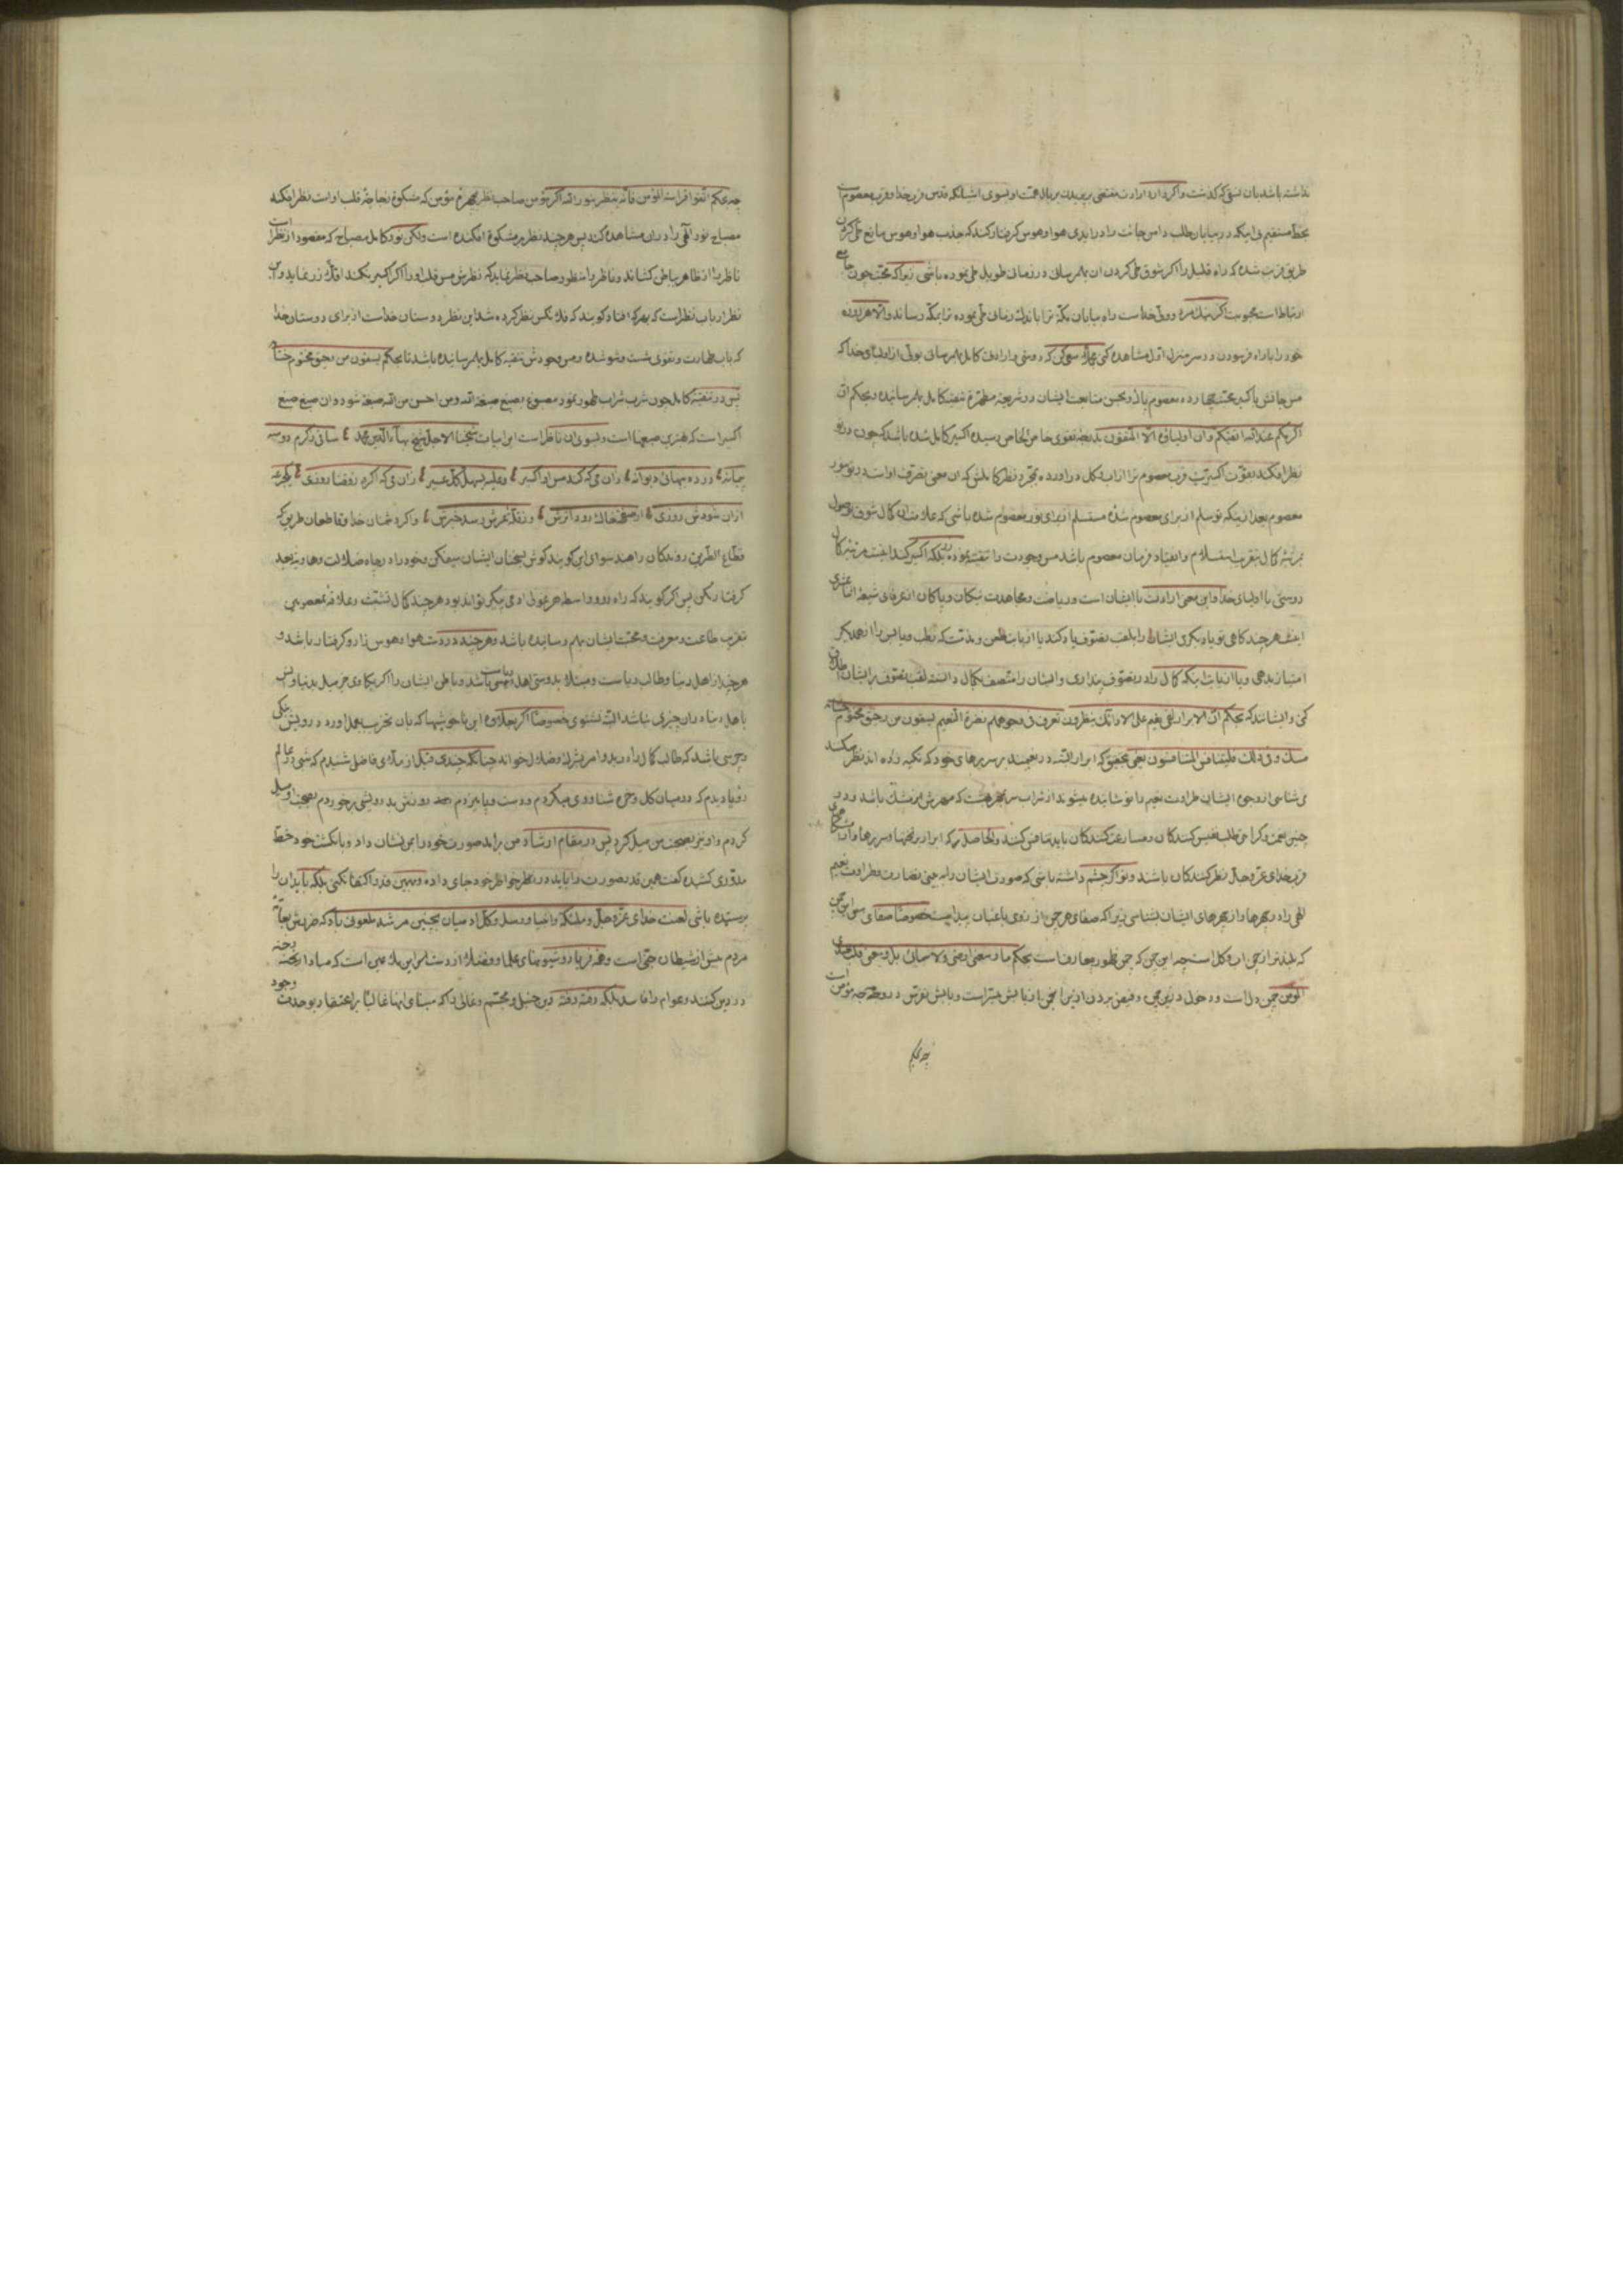 نداشته باشد بان نسق که گذشت و اگر دارد ارادت مقتضی پریدن ببال همت او بسوی اشیانکه قدس قرب خدا و قرب معصوم است
بخط مستقیم بی اینکه در بیابان طلب دامن جانت را درا بدی هوا و هوس گرفتار کند که جذب هوا و هوس مانع طی کردن
طریق قرب شده که راه قلیل را اگر بشوق طی کردن ان بهم رسانی در زمان طویل طی نموده باشی زیرا که محبت چون
ارتباط است محبوبت اگر نیک مرد و ولی خداست راه بیابان مکه ترا باندک زمان طی نموده ترا بمکه رساند و الا هرزه
خود را باراه فرسودن در سر منزل اول مشاهده کنی سعی کن که دوستی و ارادت کامل بهم رسانی بولی از اولیای خدا که
مس جانش باکسیر محبت معصوم و بحسن متابعت ایشان در شریعه مطهره تنقیه کامل بهم رسانیده و بحکم ان
اکرمکم عند الله اتقیکم و ان اولیاؤه الا المتقون بدرجه تقوی خاص الخاص رسیده اکسیر کامل شده باشد که چون در تو
نظر افکند بقوت اکسیریت قرب معصوم ترا از اب و کل دراورده بمجرد نظر کاملش که ان معنی تصرف اوست در تو بنور
معصوم بعد از اینکه تو سلم از برای معصوم شده مستسلم از برای نور معصوم شده باشی که علامت ان کمال شوق بوصول
مرتبه کمال بتقرب استسلام و انقیاد فرمان معصوم باشد مس وجودت را تنقیه نموده بلکه اکسیر کند اینست مرتبه کمال
دوستی با اولیای خدا و این معنی ارادت با ایشان است و ریاضت و مجاهدت نیکان و پاکان از عرفای شیعه اثنا عشری
اینست هر چند کاهی تو یا دیگری ایشان را بلقب تصوف یاد کند یا از باب طعن و مذمت که رطب و یابس را از همدیگر
امتیاز ندهی و یا از بابت اینکه کمال را در تصوف پنداری و ایشان را متصف بکمال دانسته لقب تصوف بر ایشان اطلاق
کنی و ایشانند که بحکم ان الابرار لفی نعیم علی الارائک ینظرون تعرف فی وجوههم نضرة النعیم یسقون من رحیق مختوم ختامه
مسک و فی ذلک فلیتنافس المتنافسون یعنی بتحقیق که ابرار البته در نعیمند بر سریرهای خود که تکیه زده اند نظر میکنند
می شناسی از وجوه ایشان طراوت نعیم را نوشانیده میشوند از شراب سر بمهر بهشت که مهرش از مشک باشد و در
چنین نعمت و کرامتی طلب نفیس کنندکان و مسارعت کنندکان باید تنافس کنند و الحاصل که ابرار بر تختها و سریرها
قرب خدای عز و جل نظر کنندکان باشند و تو اگر چشم داشته باشی که صورت ایشان را به بینی نضارت و طراوت نعیم
الهی را در چهرها و از چهرهای ایشان بشناسی زیرا که صفای هر چمن از روی باغبان پیداست خصوصا صفای
که بلندتر از چمن اب و کل است چه این چمن که چمن ظهور معارفست بحکم ما وسعنی ارضی و لا سمائی بل وسعنی قلب عبدی
المؤمن چمن دل است و دخول در این چمن و فیض بردن از این چمن از باش میسر است و بابش در وجه مؤمن است
چه بحکم
چه بحکم اتقوا فراسة المؤمن فانه ینظر بنور الله اگر مؤمن صاحب نظر بچهره مؤمن که مشکوة زجاجه قلب اوست نظر افکند
مصباح نور الهی را دران مشاهده کند پس هر چند نظر بر مشکوة افکنده است ولکن نور کامل مصباح که مقصود از نظر است
ناظر را از ظاهر بباطن کشاند و ناظر را منظور صاحب نظر نماید که نظرش مس قلب او را اگر اکسیر نکند اقلا زر نماید و این
نظر ارباب نظر است که بهر که افتاد کویند که فلانکس نظر کرده شد این نظر دوستان خداست از برای دوستان خدا
که باب طهارت و تقوی شست و شو شده و مس وجودش تنقیه کامل بهم رسانیده باشد تا بحکم یسقون من رحیق مختوم ختامه
پس در تنقیه کامل چون شرب شراب طهور نمود مصبوغ بصبغ صبغة الله و من احسن من الله صبغة شود و ان صبغ صبغ
اکسیر است که بهترین صبغها است و بسوی ان ناظر است این ابیات شیخنا الاجل شیخ بهاء الدین محمد ساقی ز کرم دو سه
پیمانه در ده ببهائی دیوانه زان می که کند مس او اکسیر و علیه یسهل کل عسیر زان می که اگر ز قضا روزی یکجرعه
ازان شودش روزی از صفحه خاک رود اثرش وز قلهٔ عرش رسد خبرش و اگر دشمنان خدا و قاطعان طریق که
قطاع الطریق روندکان راهند سوای این کویند کوش بسخنان ایشان میفکن و خود را در چاه ضلالت و هاویه بعد
گرفتار مکن پس اگر کویند که راه رو و واسطه هر غولی ادمی پیکر تواند بود هر چند کمال تشتت و علاقه معصومی
بتقرب طاعت و معرفت و محبت ایشان بهم رسانیده باشد و هر چند در دست هوا و هوس زار و گرفتار باشد و
هر چند از اهل دنیا و طالب ریاست و مبتلا بدوستی اهل ریاست باشد و باطن ایشان را اگر بکاوی جز میل بدنیا و انس
باهل دنیا دران چیزی نباشد البته نشنوی خصوصا اگر بعلاوه این ناخوشیها که بان تخریب بعمل اورد درویش بنکی
و چرسی باشد که طالب کمال را درد بدو امر بشرک و ضلال خواند چنانکه چندی قبل از ملای فاضل شنیدم که شبی در عالم
رؤیا دیدم که در میان کل و خره شناوری میکردم و دست و پا میزدم بعد روزش بدرویشی برخوردم بصحبت او میل
کردم و او نیز بصحبت من میل کرد پس در مقام ارشاد من برامد صورت خود را بمن نشان داد و بانکشت خود خط
مدوری کشیده گفت همین قدر صورت را باید در نظر خواطر خود جای داده و بهمین قدر اکتفا نکنی بلکه باید ان را
پرستیده باشی لعنت خدای عز و جل و ملئکه و انبیا و رسل و کل ادمیان بچنین مرشد ملعونی باد که ضررش بعامه
مردم بیش از شیطان جنی است وقتی فریاد و شیون های علما و فضلا از دست این سک است که مبادا رخنه
در دین کنند و عوام را فاسد بلکه رفته رفته دین حنبلی و مجسم و غالی را که مبنای اینها غالبا بر اعتقاد بوحدت وجود